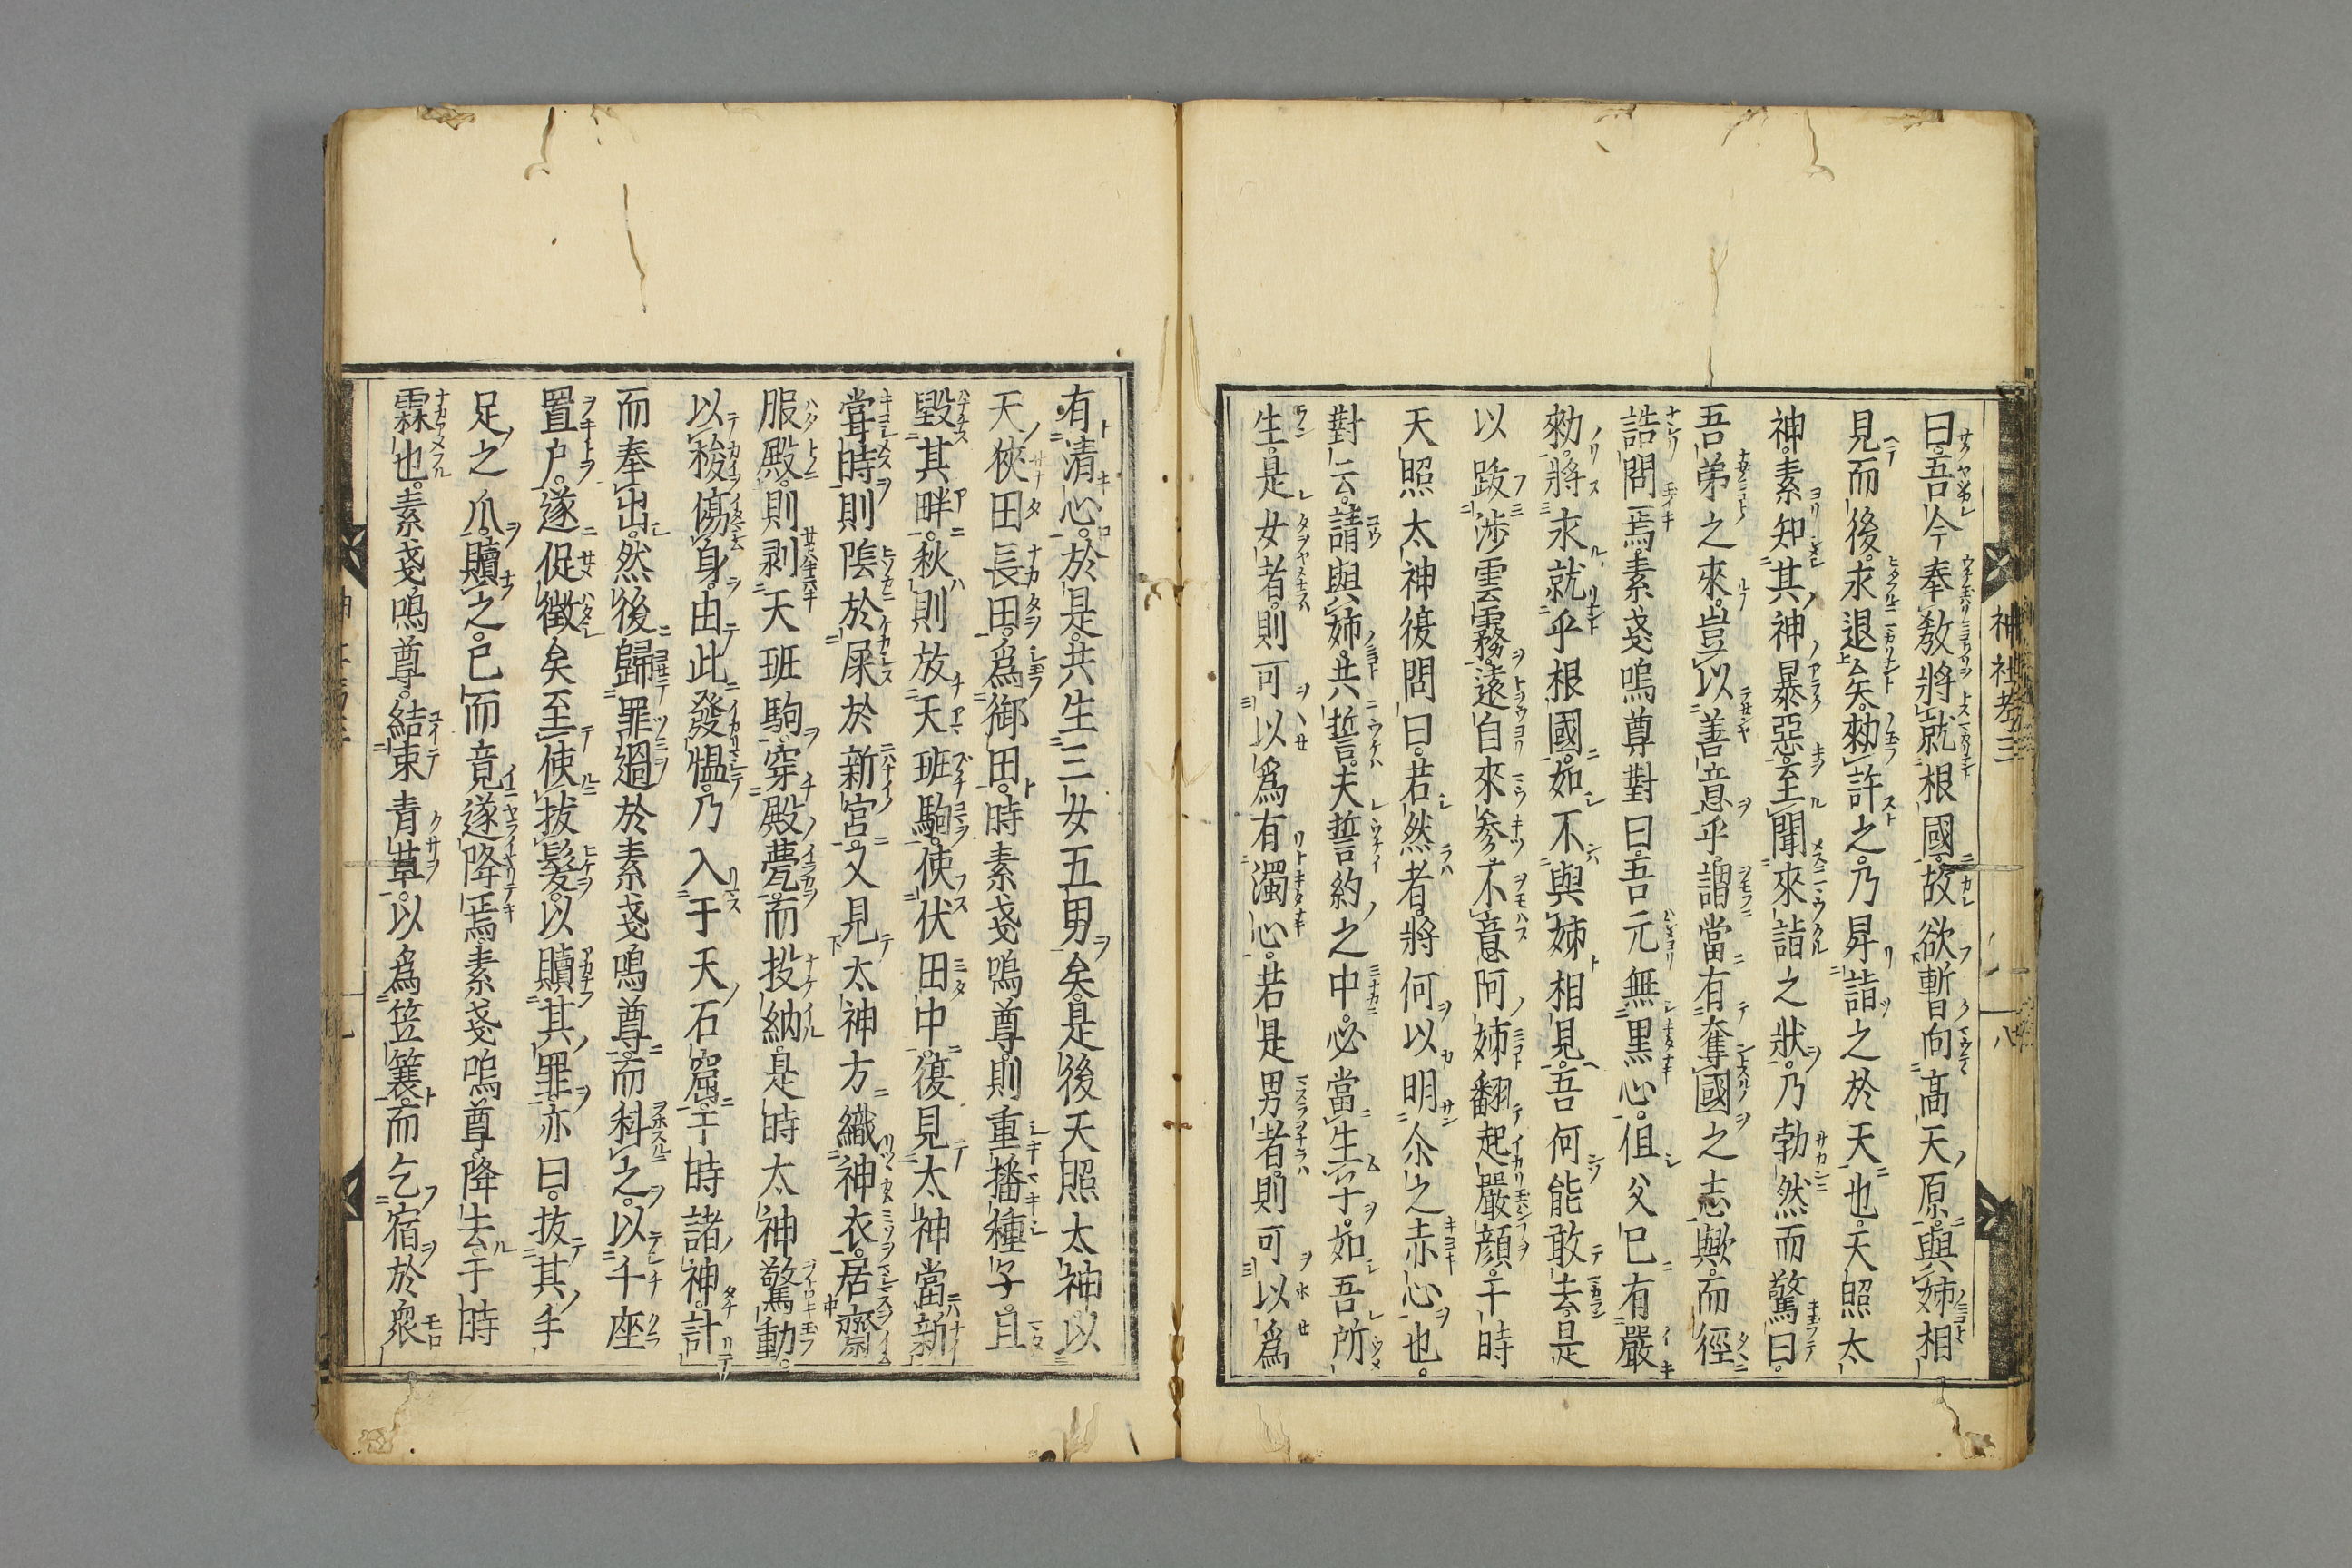 曰吾今奉敎將就根國故欲暫向高天原與姉相
見而後永退矣勅許之乃昇詣之於天也天照太
神素知其神暴惡至聞來詣之狀乃勃然而驚曰
吾弟之來豈以善意乎謂當有奪國之志歟而徑
詰問焉素戔嗚尊對曰吾元無黑心但父已有嚴
勅將永就乎根國如不與姉相見吾何能敢去是
以跋渉雲霧遠自來參不意阿姉翻起嚴顏于時
天照太神復問曰若然者將何以明尒之赤心也
對云請與姉共誓夫誓約之中必當生子如吾所
生是女者則可以爲有濁心若是男者則可以爲
神社考三
八
有清心於是共生三女五男矣是後天照太神以
天狹田長田爲御田時素戔嗚尊則重播種子且
毀其畔秋則放天班駒使伏田中復見太神當新
甞時則陰於屎於新宮又見太神方織神衣居齋
服殿則剥天班駒穿殿甍而投納是時太神驚動
以梭傷身由此發慍乃入于天石窟于時諸神計
而奉出然後歸罪過於素戔嗚尊而科之以千座
置戸遂促徴矣至使拔髮以贖其罪亦曰抜其手
足之爪贖之已而竟遂降焉素戔嗚尊降去于時
霖也素戔嗚尊結束青草以爲笠簑而乞宿於衆